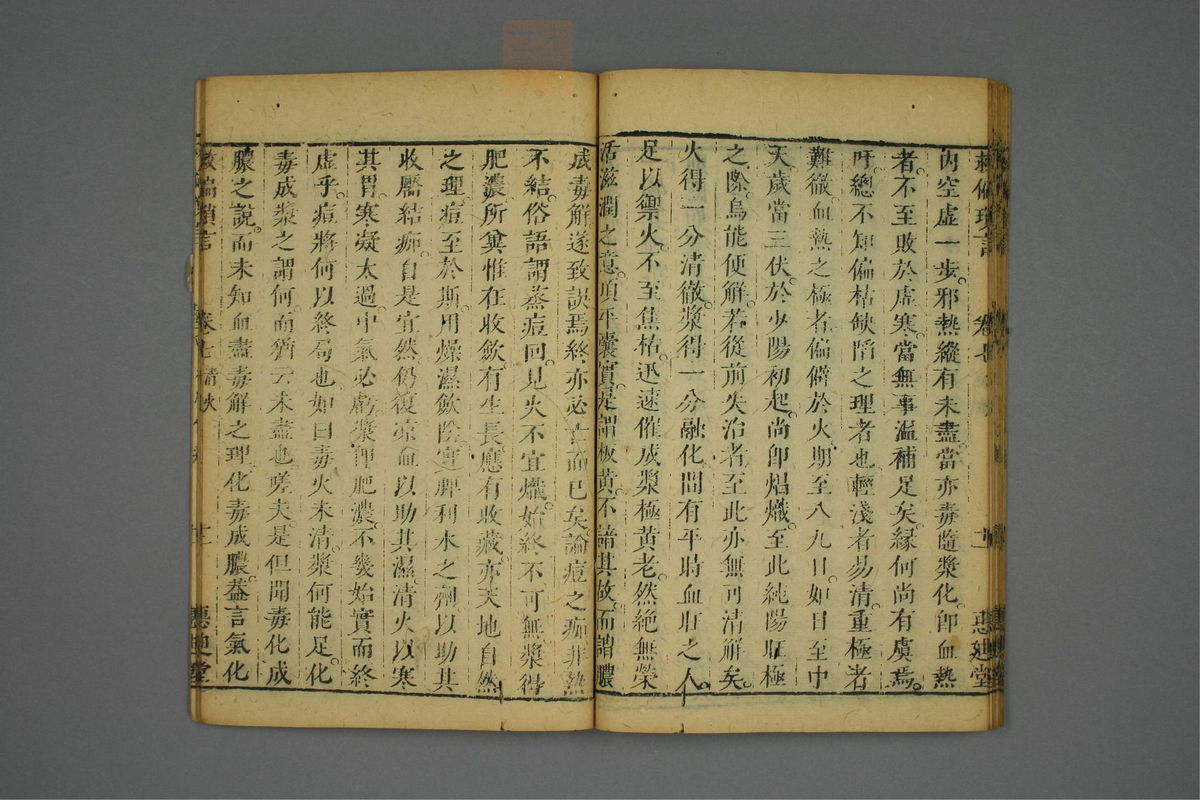 救偏瑣言 卷七 二 惠迪堂
內空虛一步邪熱縱有未盡當亦毒隨漿化卽血熱
者不至敗於虛寒當無事溫補足矣緣何尚有虞焉
吁總不知偏枯缺陷之理者也輕淺者易清重極者
難徹血熱之極者偏僻於火期至八九日如日至中
天歲當三伏於少陽初起尚卽焰熾至此純陽旺極
之際烏能便解若從前失治者至此亦無可清解矣
火得一分清徹漿得一分融化間有平時血旺之人
足以禦火不至焦枯迅速催成漿極黃老然絕無榮
活滋潤之意頂平囊實是謂板黃不諳其故而謂膿
成毒解遂致誤焉終亦必亡而已矣論痘之痂非熱
不結俗語謂蒸痘回見火不宜熾始終不可無漿得
肥濃所冀惟在收斂有生長應有收藏亦天地自然
之理痘至於斯用燥濕斂陰實脾利水之劑以助其
收靨結痂自是宜然仍復凉血以助其濕清火以寒
其胃寒凝太過中氣必虧漿雖肥濃不幾始實而終
虛乎痘將何以終局也如曰毒火未清漿何能足化
毒成漿之謂何而猶云未盡也嗟夫是但聞毒化成
膿之說而未知血盡毒解之理化毒成膿葢言氣化
救偏瑣言 卷七 惠迪堂